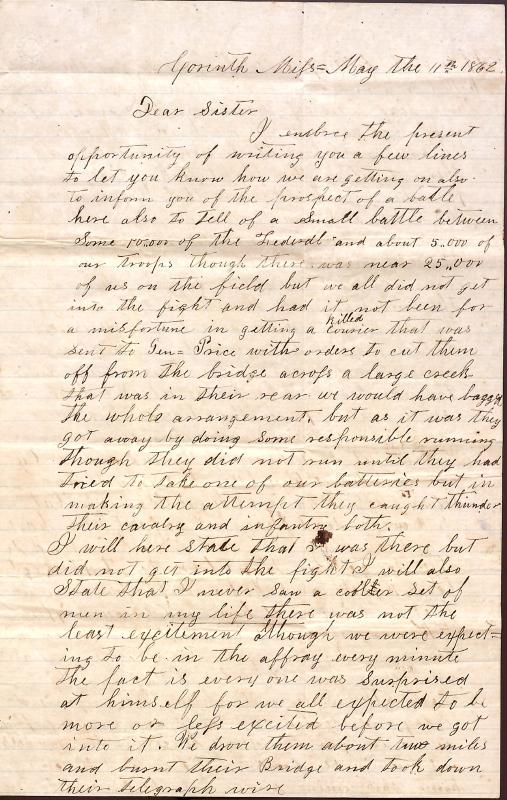 Corinth Miss= May the 11th 1862.
Dear Sister
I embrce the present
opportunity of writing you a few lines
to let you know how we are getting on also
to inform you of the prospect of a batle
here also to tell of a small battle between
some 10.000 of the Federals and about 5.000 of
our troops though there was near 25,000
of us on the field but we all did not get
into the fight and had it not been for
a misfortune in getting a killed courier that was
sent to Gen= Price with orders to cut them
off from the bridge across a large creek
that was in their rear we would have bagged
the whole arrangement, but as it was they
got away by doing some responsible running
though they did not run until they had
tried to take one of our batteries but in
making the attempt they caught thunder
their cavalry and infantry both.
I will here state that I was there but
did not get into the fight I will also
State that I never saw a cooller set of
men in my life there was not the
least excitement although we were expect=
ing to be in the affray every minute
the fact is every one was surprised
at himself for we all expected to be
more or less excited before we got
into it. We drove them about two miles
and burnt their Bridge and took down
their telegraph wire